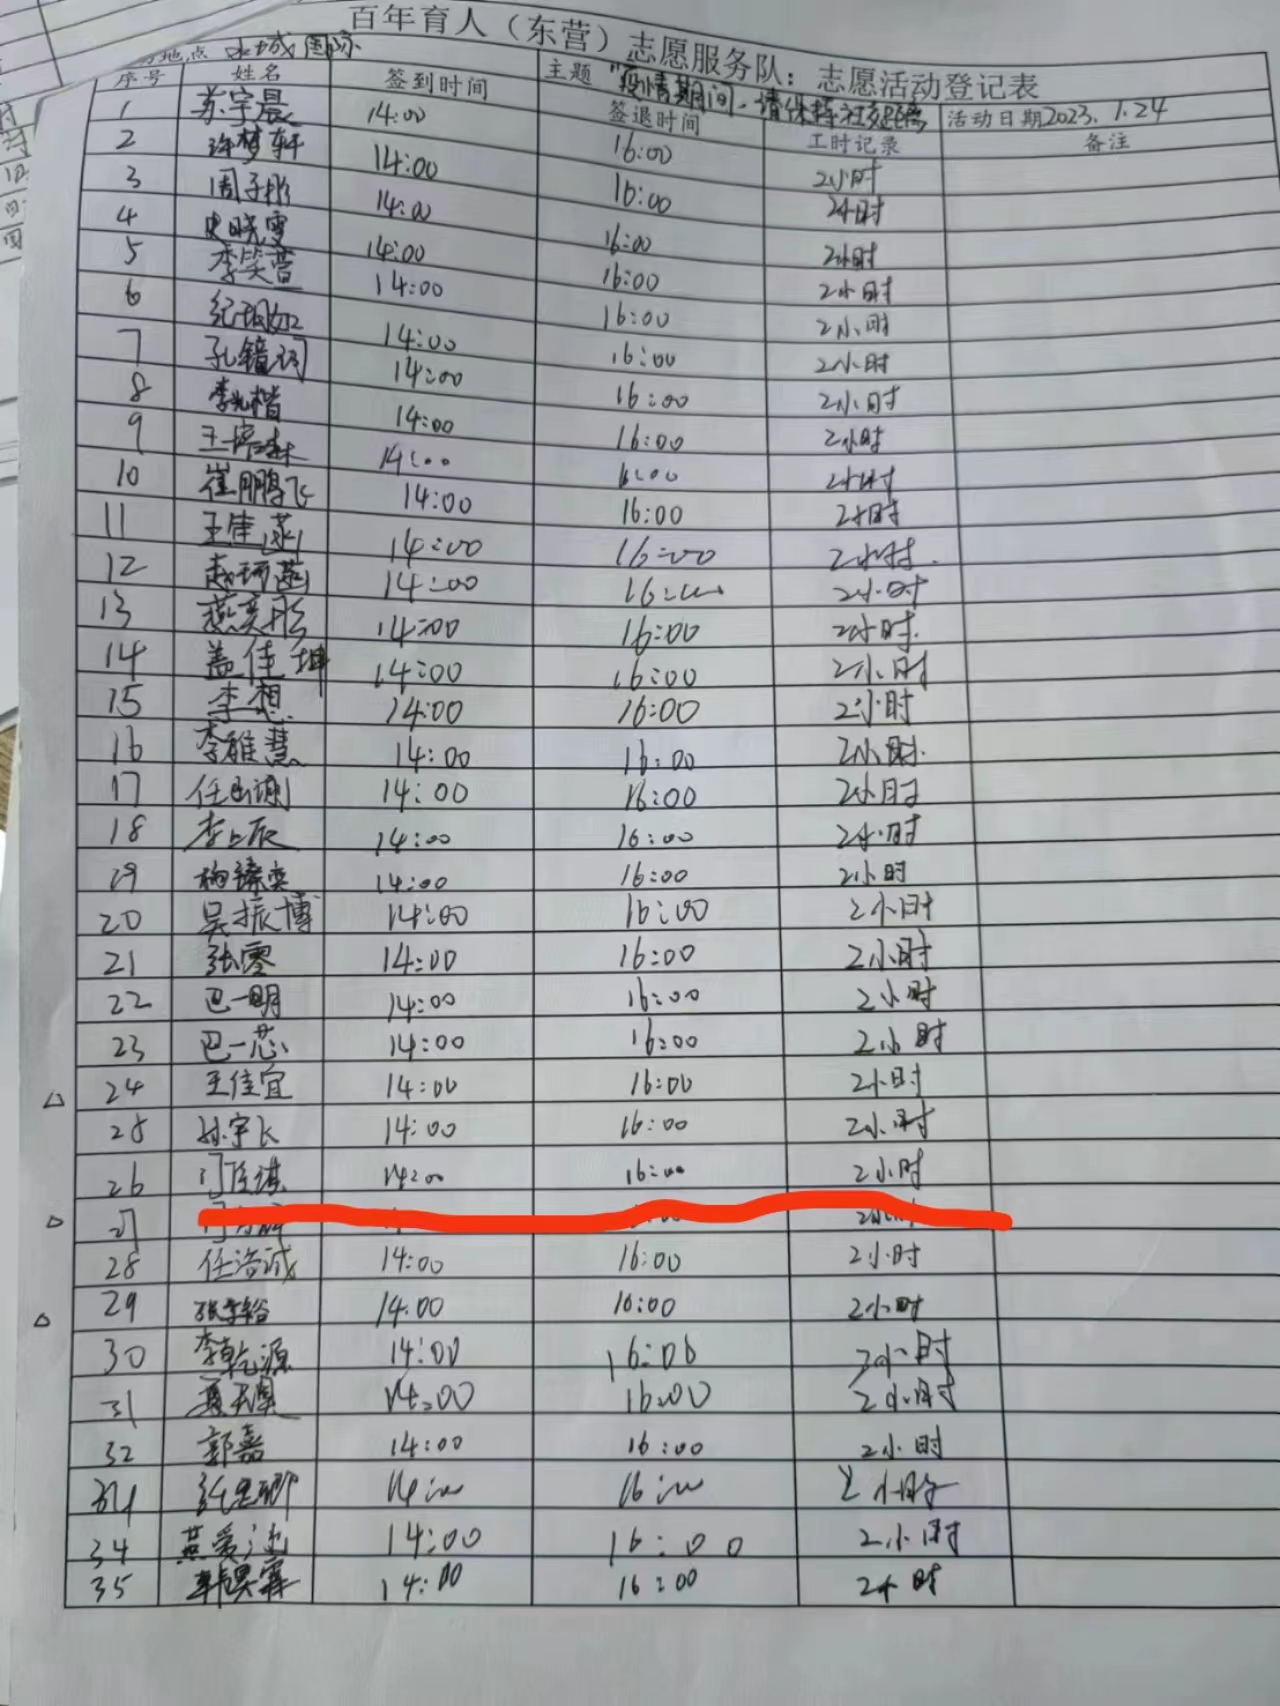 百年育人（东营）志愿服务队：志愿活动登记表
地点 水城国际 主题 "疫情期间，请保持社交距离 活动日期2023.1.24
序号 姓名 签到时间 签退时间 工时记录 备注
1 苏宇晨 14:00 16:00 2小时
2 许梦轩 14:00 16:00 2小时
3 周子彤 14:00 16:00 2小时
4 史晓雯 14:00 16:00 2小时
5 李笑萱 14:00 16:00 2小时
6 14:00 16:00 2小时
7 14:00 16:00 2小时
8 14:00 16:00 2小时
9 14:00 16:00 2小时
10 崔鹏飞 14:00 16:00 2小时
11 王佳菡 14:00 16:00 2小时.
12 赵珂菡 14:00 16:00 2小时
13 燕奕彤 14:00 16:00 2小时.
14 盖佳坤 14:00 16:00 2小时
15 李想 14:00 16:00 2小时
16 李雅慧 14:00 16:00 2小时.
17 14:00 16:00 2小时
18 李上辰 14:00 16:00 2小时
19 14:00 16:00 2小时
20 吴振博 14:00 16:00 2小时
21 张零 14:00 16:00 2小时
22 巴一明 14:00 16:00 2小时
23 巴一芯 14:00 16:00 2小时
24 王佳宜 14:00 16:00 2小时
25 孙宇飞 14:00 16:00 2小时
26 14:00 16:00 2小时
27
28 任浩诚 14:00 16:00 2小时
29 14:00 16:00 2小时
30 李乾源 14:00 16:00 2小时
31 14:00 16:00 2小时
32 郭嘉 14:00 16:00 2小时
34 14:00 16:00 2小时
34 14:00 16:00 2小时
35 韩昊霖 14:00 16:00 2小时